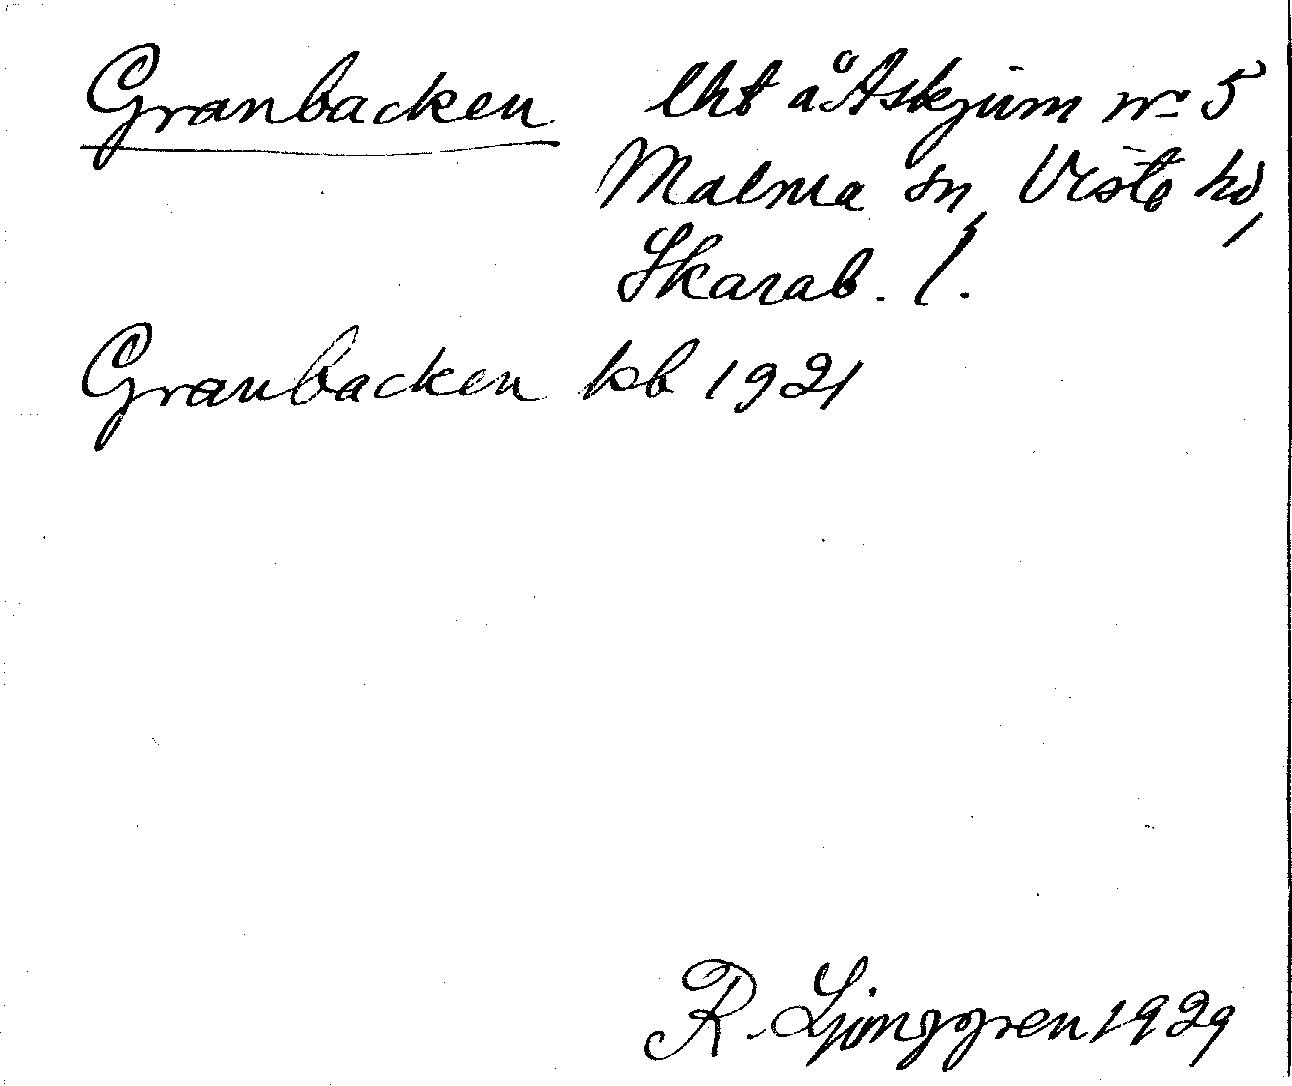 Granbacken lht å Åskjum nr 5
Malma sn, Viste hd,
Skarab. l.
Granbacken kb 1921
R. Ljunggren 1929